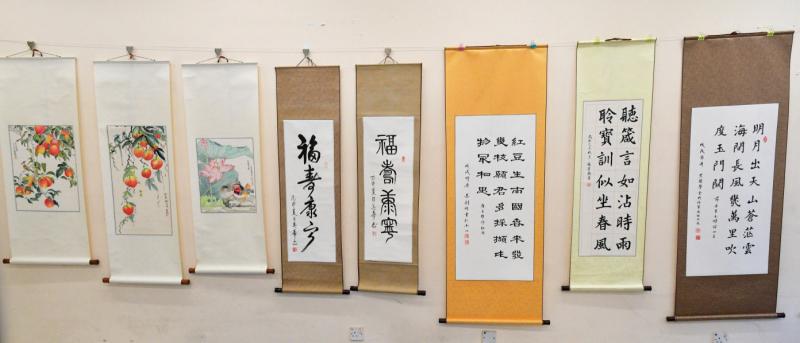 福壽康寧
福壽康寧
紅豆生南國春來發
幾枝願君多採擷此
物冣相思
聽箴言如沾時雨
聆寶訓似坐春風
明月出天山蒼茫雲
海間長風幾萬里吹
度玉門關